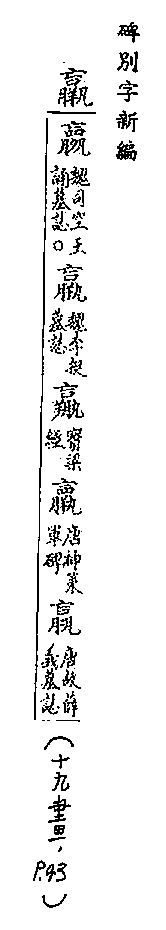 碑別字新編
羸
魏司空王誦墓誌〇
魏李挺墓誌
寶梁經
唐神策軍碑
唐故薛義墓誌
(十九畫,P.43)